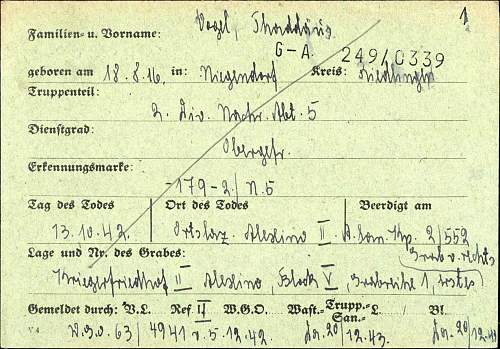 1
Familien- u. Vorname: Vogel, Thaddäus
G-A 249/0339
geboren am 18.8.16. in: Kreis:
Truppenteil: 2. Div. Nachr. Abt. 5
Dienstgrad: Obergefr.
Erkennungsmarke: -179-2/N.5
Tag des Todes Ort des Todes Beerdigt am
13.10.42. Ortslaz. Alexino II San. Kp. 2/552
Grab v. rechts
Lage und Nr. des Grabes:
Kriegerfriedhof II Alexino, Block V, Grabreihe 1, erstes
Gemeldet durch: V.L. Ref II W.G.O. Wast.-Trupp.-San.-L / Bl.
63/4941 v. 5.12.42 20/12.43. 20/12.
V 4